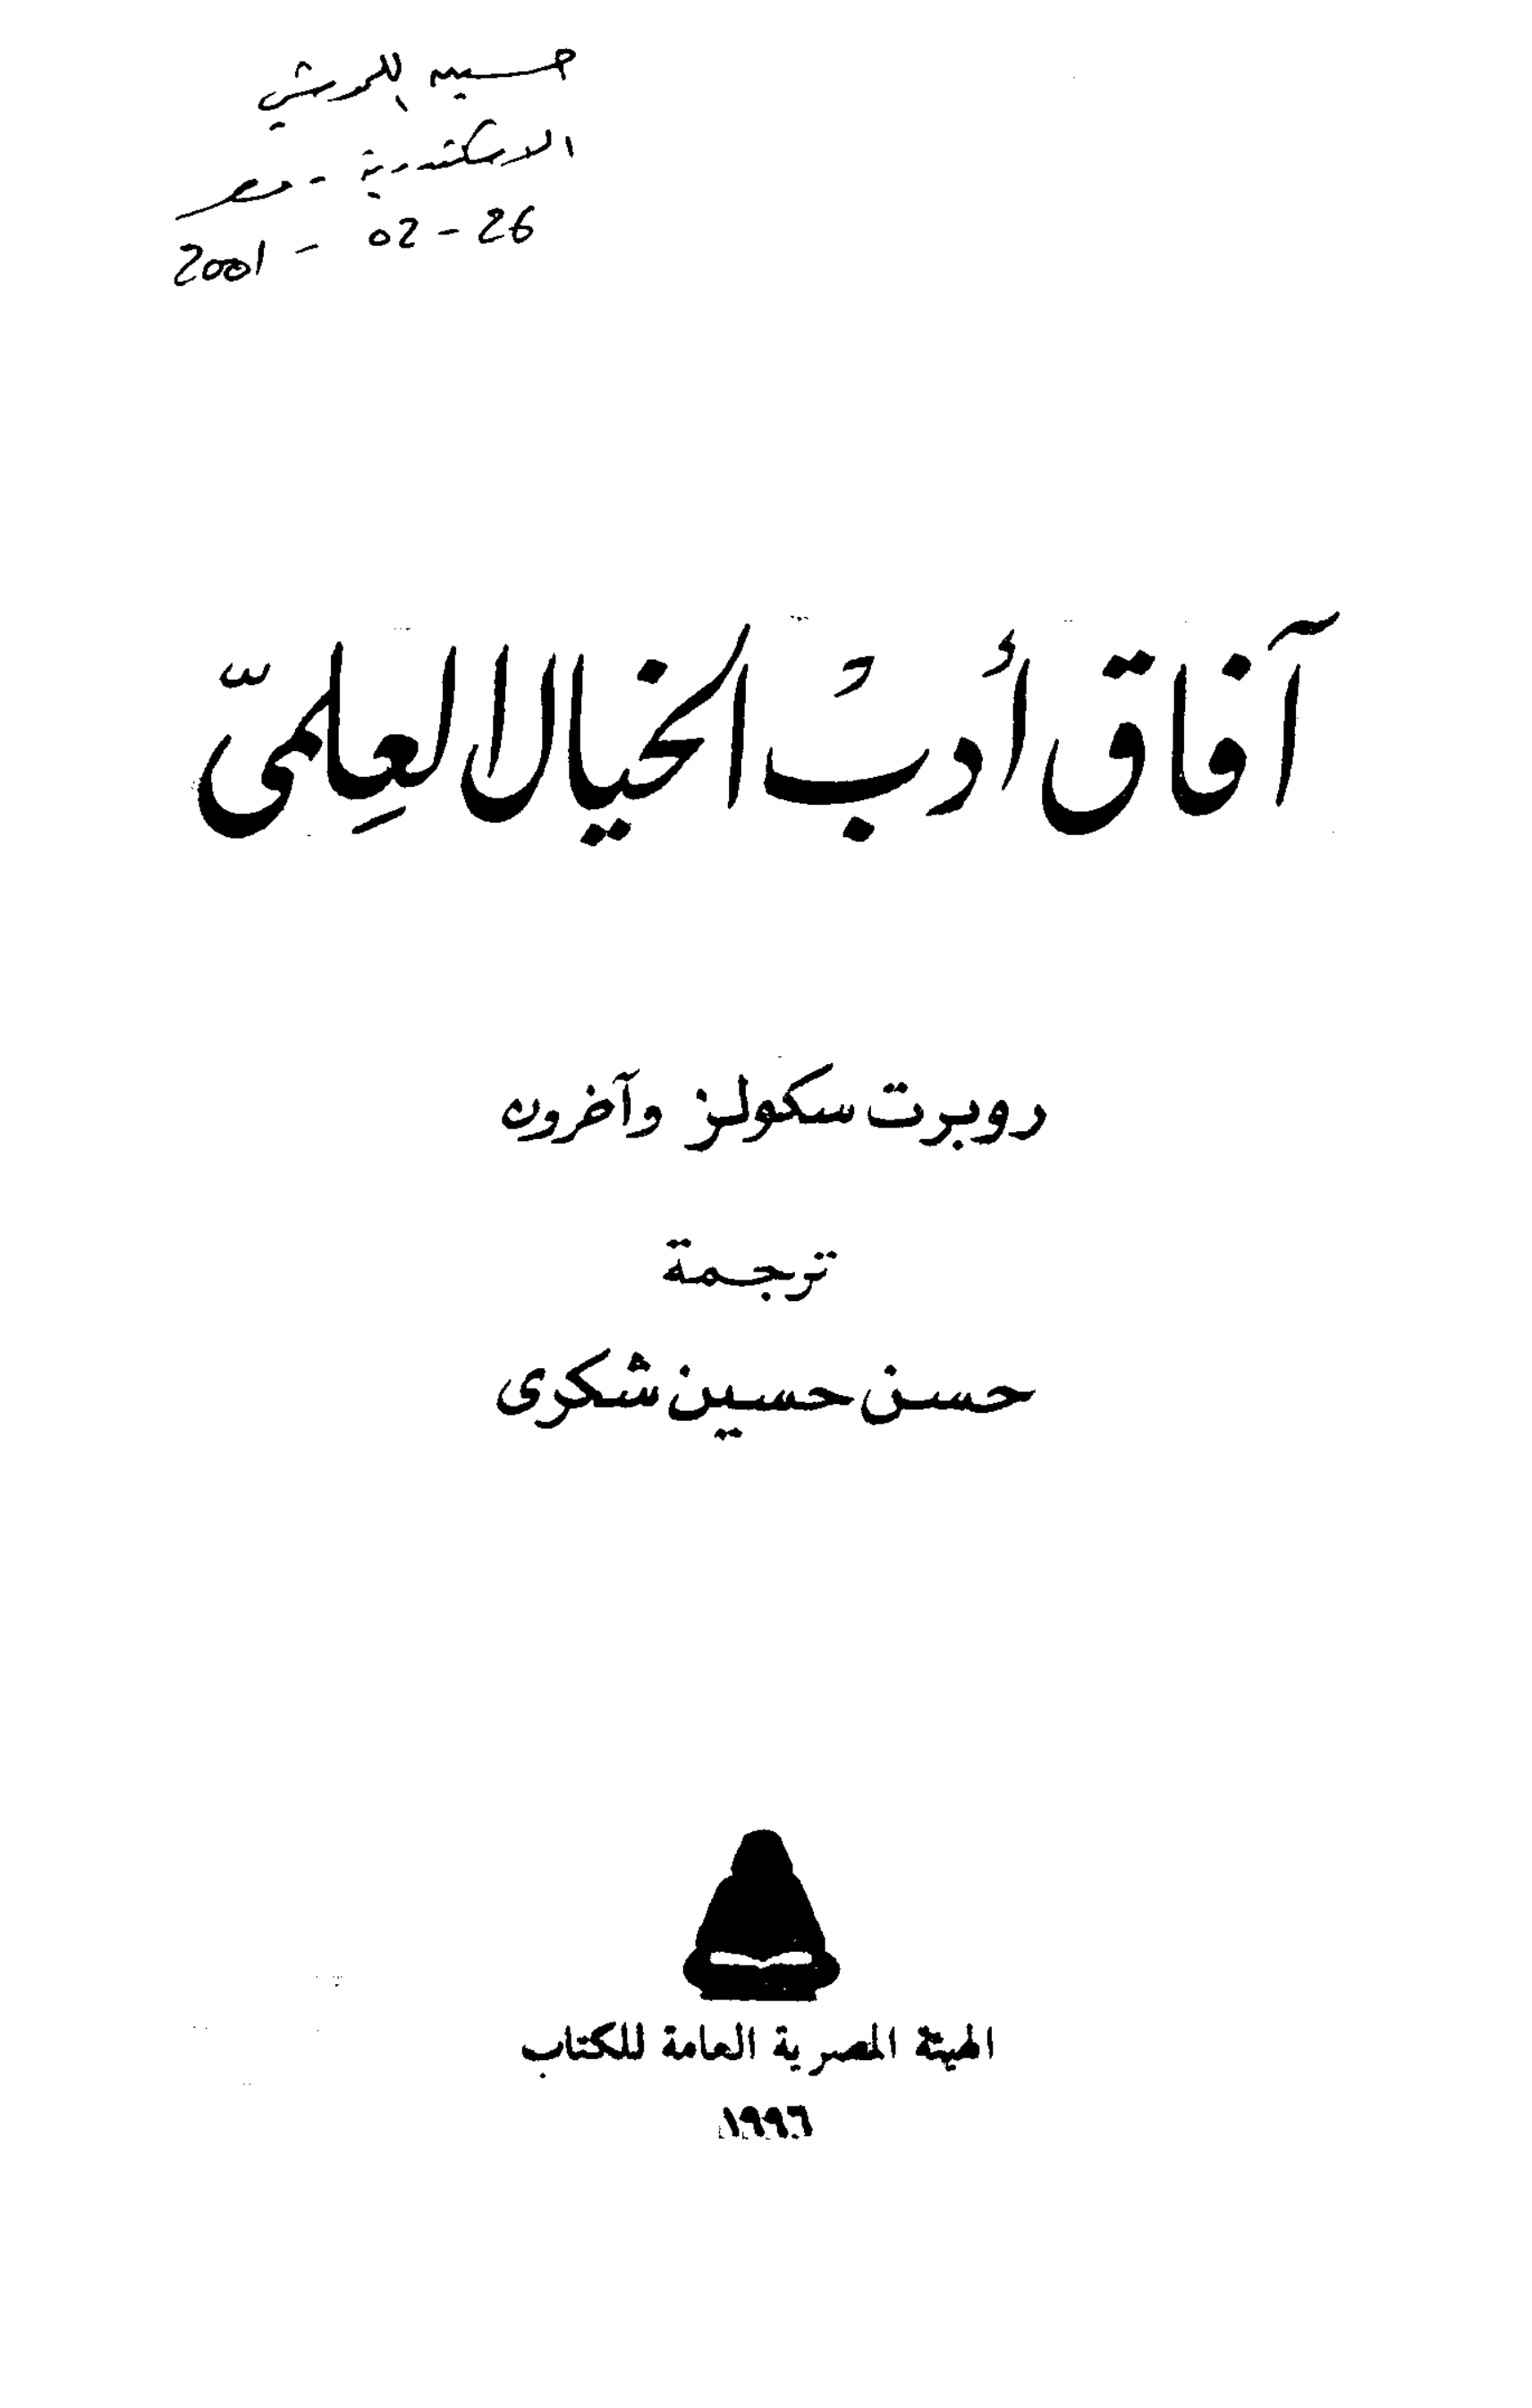 حسين
الاسكندرية - مصر
26 - 02 - 2001
آفاق أدب الخيال العِلميّ
روبرت سكولز وآخرون
ترجمة
حسن حسين شكرى
الهيئة المصرية العامة للكتاب
١٩٩٦